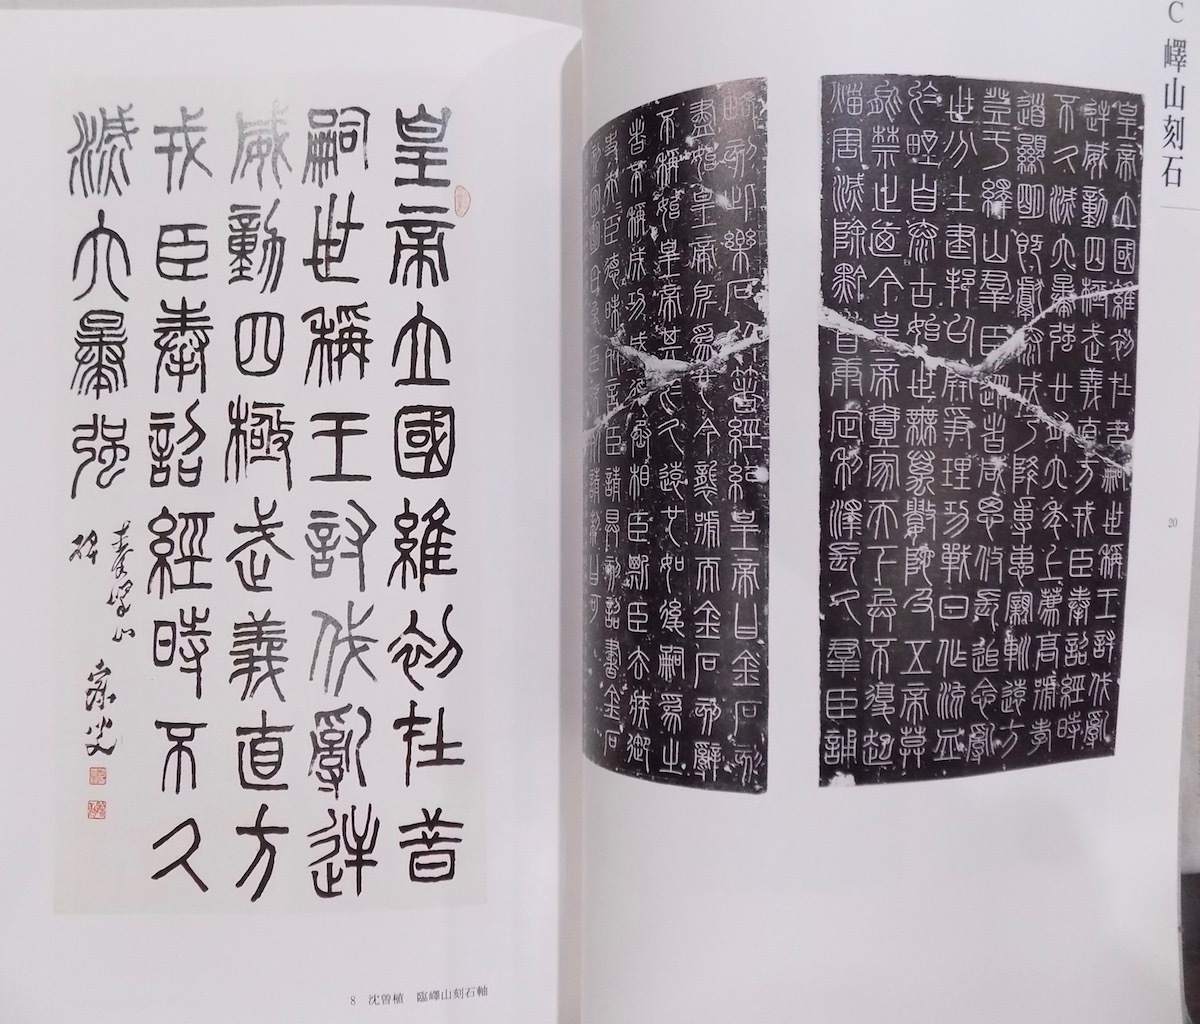 皇帝立國維初在昔
嗣世稱王討伐亂逆
威動四極武義直方
戎臣奉詔經時不久
滅六暴強
秦嶧山
碑
寐叟
8 沈曾植 臨嶧山刻石軸
C 嶧山刻石
20
皇帝立國維初在昔嗣世稱王討伐亂
逆威動四極武義直方戎臣奉詔經時
不久滅六暴強廿有六年上薦高號孝
道顯明既獻泰成乃降專惠親巡遠方
登于繹山群臣從者咸思攸長追念亂
世分土建邦以開爭理功戰日作流血
於野自泰古始世無萬數陀及五帝莫
能禁止迺今皇帝壹家天下兵不復起
災害滅除黔首康定利澤長久群臣誦
略刻此樂石以著經紀皇帝曰金石刻
盡始皇帝所為也今襲號而金石刻辭
不稱始皇帝其於久遠也如後嗣為之
者不稱成功盛德丞相臣斯臣去疾御
史夫臣德昧死言臣請具刻詔書金石
刻因明白矣臣昧死請制曰可